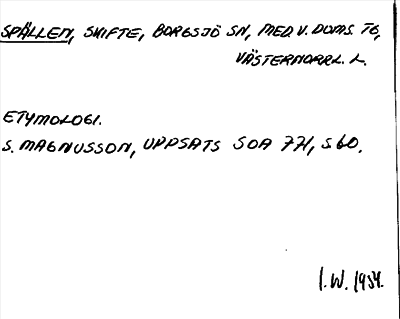 SPÄLLEN, SKIFTE, BORGSJÖ SN, MED. V. DOMS. TG,
VÄSTERNORRL. L.
ETYMOLOGI.
S. MAGNUSSON, UPPSATS SOA 771, S. 60.
I.W. 1954.